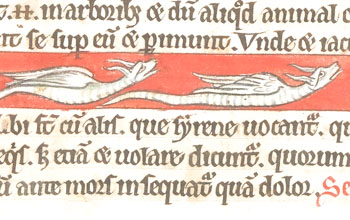 t. H. in arborib; & dū aliqd animal o
int se sup eū & pimunt. Vnde & iac
Ubi st cū alis. que syrene uocant. qu
eqs. s; etiā & uolare dicunt. quorum
ū ante mors insequat quā dolor. Se